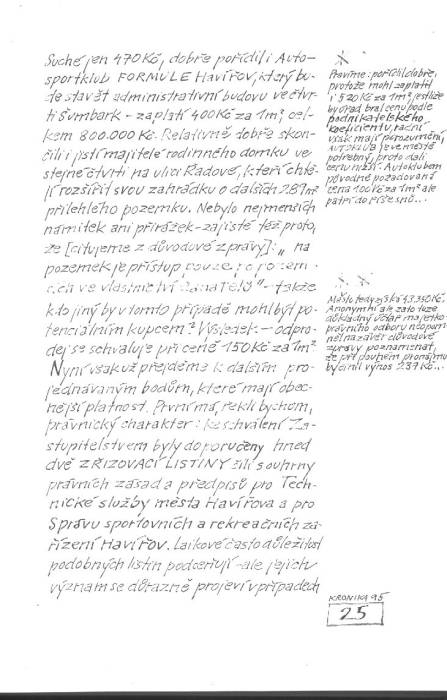 Suché jen 470 Kč, dobře pořídil i Auto-
sportklub FORMULE Havířov, který bu-
de stavět administrativní budovu ve čtvr-
ti Šumbark - zaplatí 400 Kč za 1m², cel-
kem 800.000 Kč. Relativně dobře skon-
čili i jistí majitelé rodinného domku ve
stejné čtvrti na ulici Radové, kteří chtě-
jí rozšířit svou zahrádku o dalších 289m²
přilehlého pozemku. Nebylo nejmenších
námitek ani přirážek - zajisté též proto,
že [citujeme z důvodové zprávy]: „na
pozemek je přístup pouze z pozem-
cích ve vlastnictví žadatelů" - takže
kdo jiný by v tomto případě mohl být po-
tenciálním kupcem? Výsledek - odpro-
dej se schvaluje při ceně 150 Kč za 1m².
Nyní však už přejděme k dalším pro-
jednávaným bodům, které mají obec-
nější platnost. První má, řekli bychom,
právnický charakter: ke schválení Za-
stupitelstvem byly doporučeny hned
dvě ZŘIZOVACÍ LISTINY čili souhrny
právních zásad a předpisů pro Tech-
nické služby města Havířova a pro
Správu sportovních a rekreačních za-
řízení Havířov. Laikové často důležitost
podobných listin podceňují - ale jejich
význam se důrazně projeví v případech
Pravíme: pořídil dobře,
protože mohl zaplatit
i 520 Kč za 1m², jestliže
by úřad bral cenu podle
podnikatelského
koeficientu, radní
však mají porozumění,
AUTOKLUB je ve městě
potřebný, proto dali
cenu nižší. Bohužel
původně požadovaná
cena 100 Kč za 1m² ale
patří do říše snů...
Město tedy získá 43.350 Kč.
Anonymní ale zato tuze
důkladný úředník majetko-
právního odboru neopom-
něl na závěr důvodové
zprávy poznamenat,
že při pouhém pronájmu
by činil výnos 289 Kč...
KRONIKA 95
25